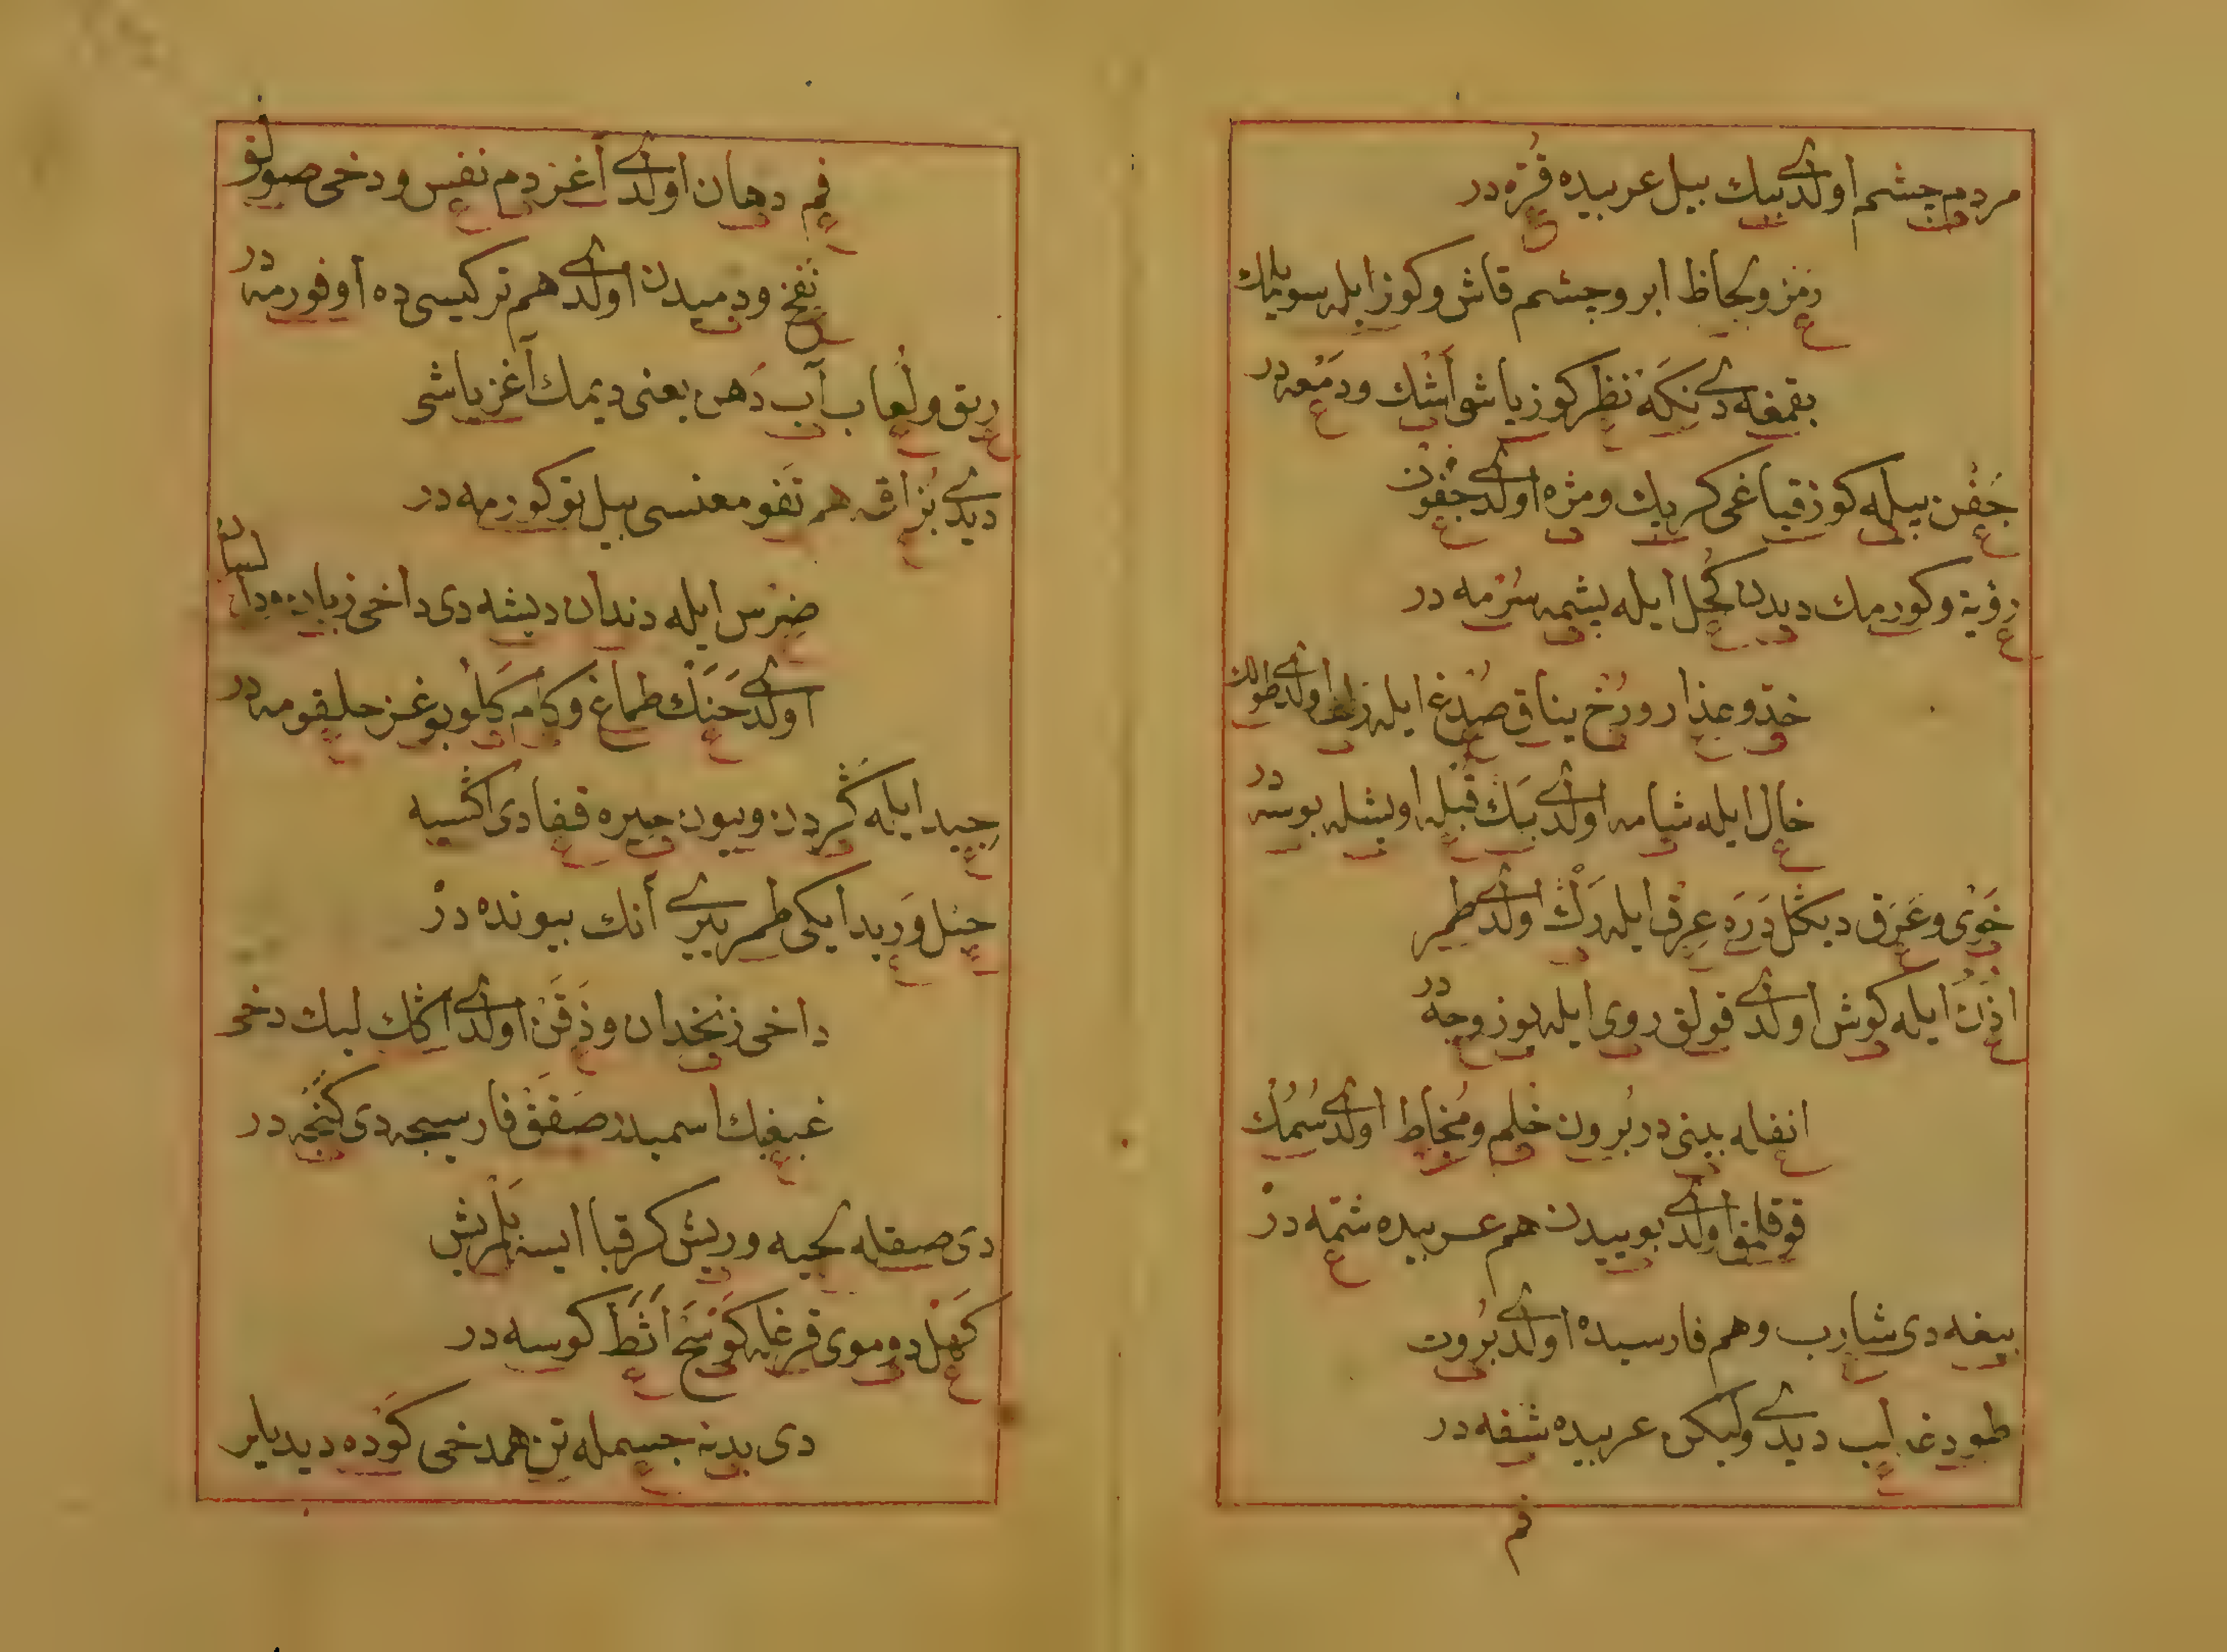 مردم چشم اولدی ببك بيل عربيده قره در
رمز ولحاظ ابرو وچشم قاش وكوز ايله سويلمك
بقمغه دی نكه نظر كوز ياشو اشك ودمعه در
جفن بيله كوز قپاغی كرپك ومژه اولدی جفون
رؤية وكورمك ديدن كحل ايله پشمه سرمه در
خد وعذار ورخ يناق صدغ ايله زلف اولدی طولك
خال ايله شامه اولدی بك قبله اوپشله بوسه در
خوی وعرق ديكل دره عرق ايله رك اولدی طمر
اذن ايله كوش اولدی قولق روی ايله يوز وجه در
انفله بينی در برون خلم ومخاط اولدی سمك
قوقلمق اولدی بوييدن هم عربيده شمه در
بيغه دی شارب وهم فارسيده اولدی بروت
طوداغه لب ديدی وليكن عربيده شفه در
فم
فم دهان اولدی اغز دم نفس ودخی صولق
نفخ ودميدن اولدی هم تركيسی ده اوفورمه در
ريق ولعاب آب دهن يعنی ديمك آغز ياشی
ديدی بزاقه هم تفو معنسی بيل توكورمه در
ضرس ايله دندان ديشه دی داخی زبانه دا لسان
اولدی حنك طماغ وكام كلو بوغز حلقومه در
جيد ايله كردن وبيون چيره قفا دی اكسيه
حبل وريد ايكی طمر بيری أنك بيونده در
داخی زنخدان وذقن اولدی اكك ليك دخی
غبغبك اسميدر صقق فارسيجه دی كنجه در
دی صقله لحيه وريش كر قبا ايسه بلمريش
كهل دوموی قرغله كوسج اثط كوسه در
دی بدنه جسمله تن همدخی كوده ديديلر